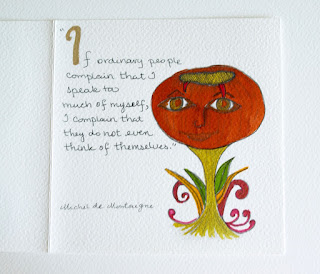 "If ordinary people
complain that I
speak too
much of myself,
I complain that
they do not even
think of themselves."
Michel de Montaigne